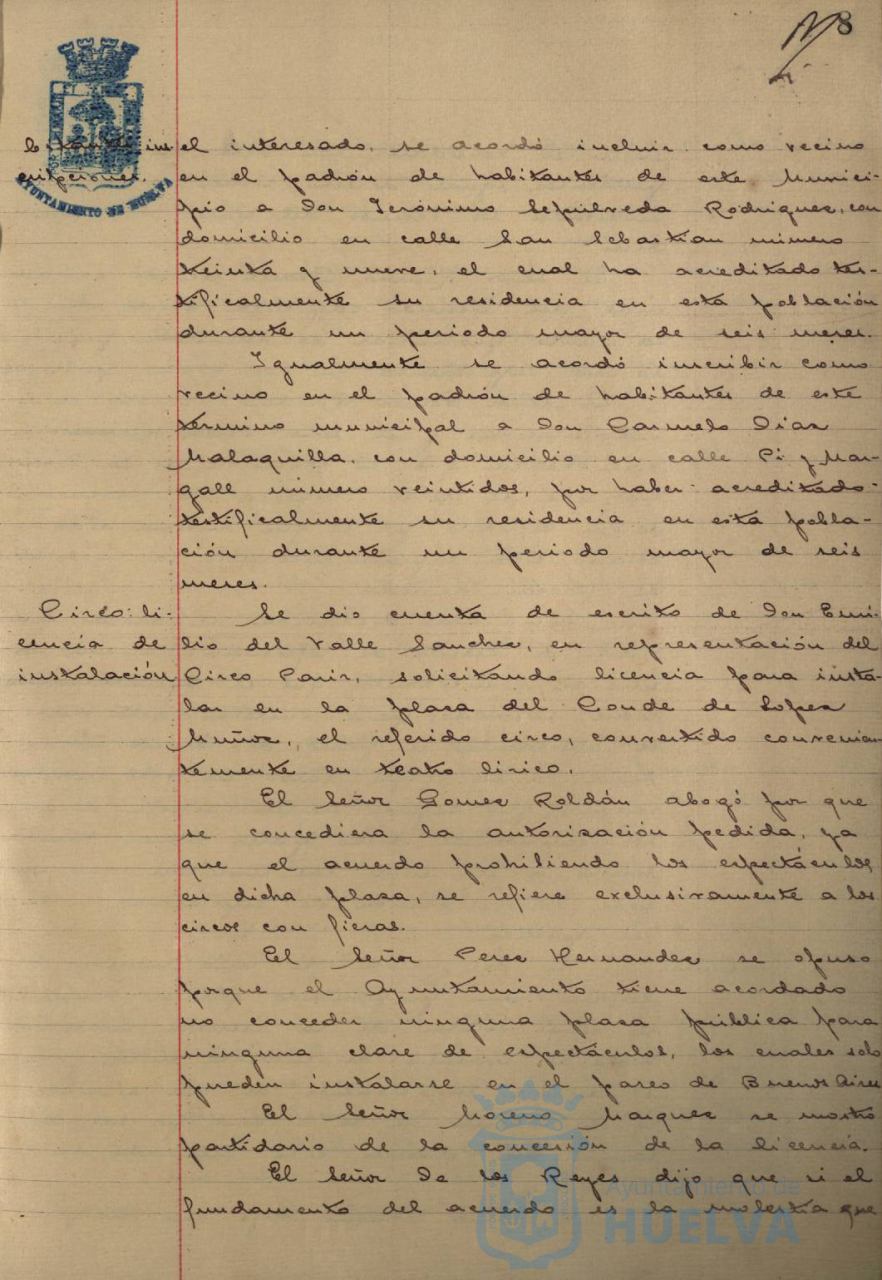 8
bitantes: ins-
cripciones.
AYUNTAMIENTO DE HUELVA
el interesado, se acordó incluir como vecino
en el padrón de habitantes de este Munici-
pio a Don Jerónimo Sepúlveda Rodriguez, con
domicilio en calle San Sebastian número
treinta y nueve, el cual ha acreditado tes-
tificalmente su residencia en esta población
durante un periodo mayor de seis meses.
Igualmente se acordó inscribir como
vecino en el padrón de habitantes de este
término municipal a Don Carmelo Dias
Malaquilla, con domicilio en calle Pi y Mar-
gall número veintidos, por haber acreditado
testificalmente su residencia en esta pobla-
ción durante un periodo mayor de seis
meses.
Circo: li-
cencia de
instalación
Se dio cuenta de escrito de Don Emi-
lio del Valle Sanchez, en representación del
Circo Paris, solicitando licencia para insta-
lar en la plaza del Conde de Lopez
Muñoz, el referido circo, convertido convenien-
temente en teatro lírico.
El Señor Gomez Roldán abogó por que
se concediera la autorización pedida, ya
que el acuerdo prohibiendo los espectáculos
en dicha plaza, se refiere exclusivamente a los
circos con fieras.
El Señor Perez Hernandez se opuso
porque el Ayuntamiento tiene acordado
no conceder ninguna plaza pública para
ninguna clase de espectáculos, los cuales solo
pueden instalarse en el paseo de Buenos Aires
El Señor Moreno Marquez se mostró
partidario de la concesión de la licencia.
El Señor De los Reyes dijo que si el
fundamento del acuerdo es la molestia que
Ayuntamiento de
HUELVA